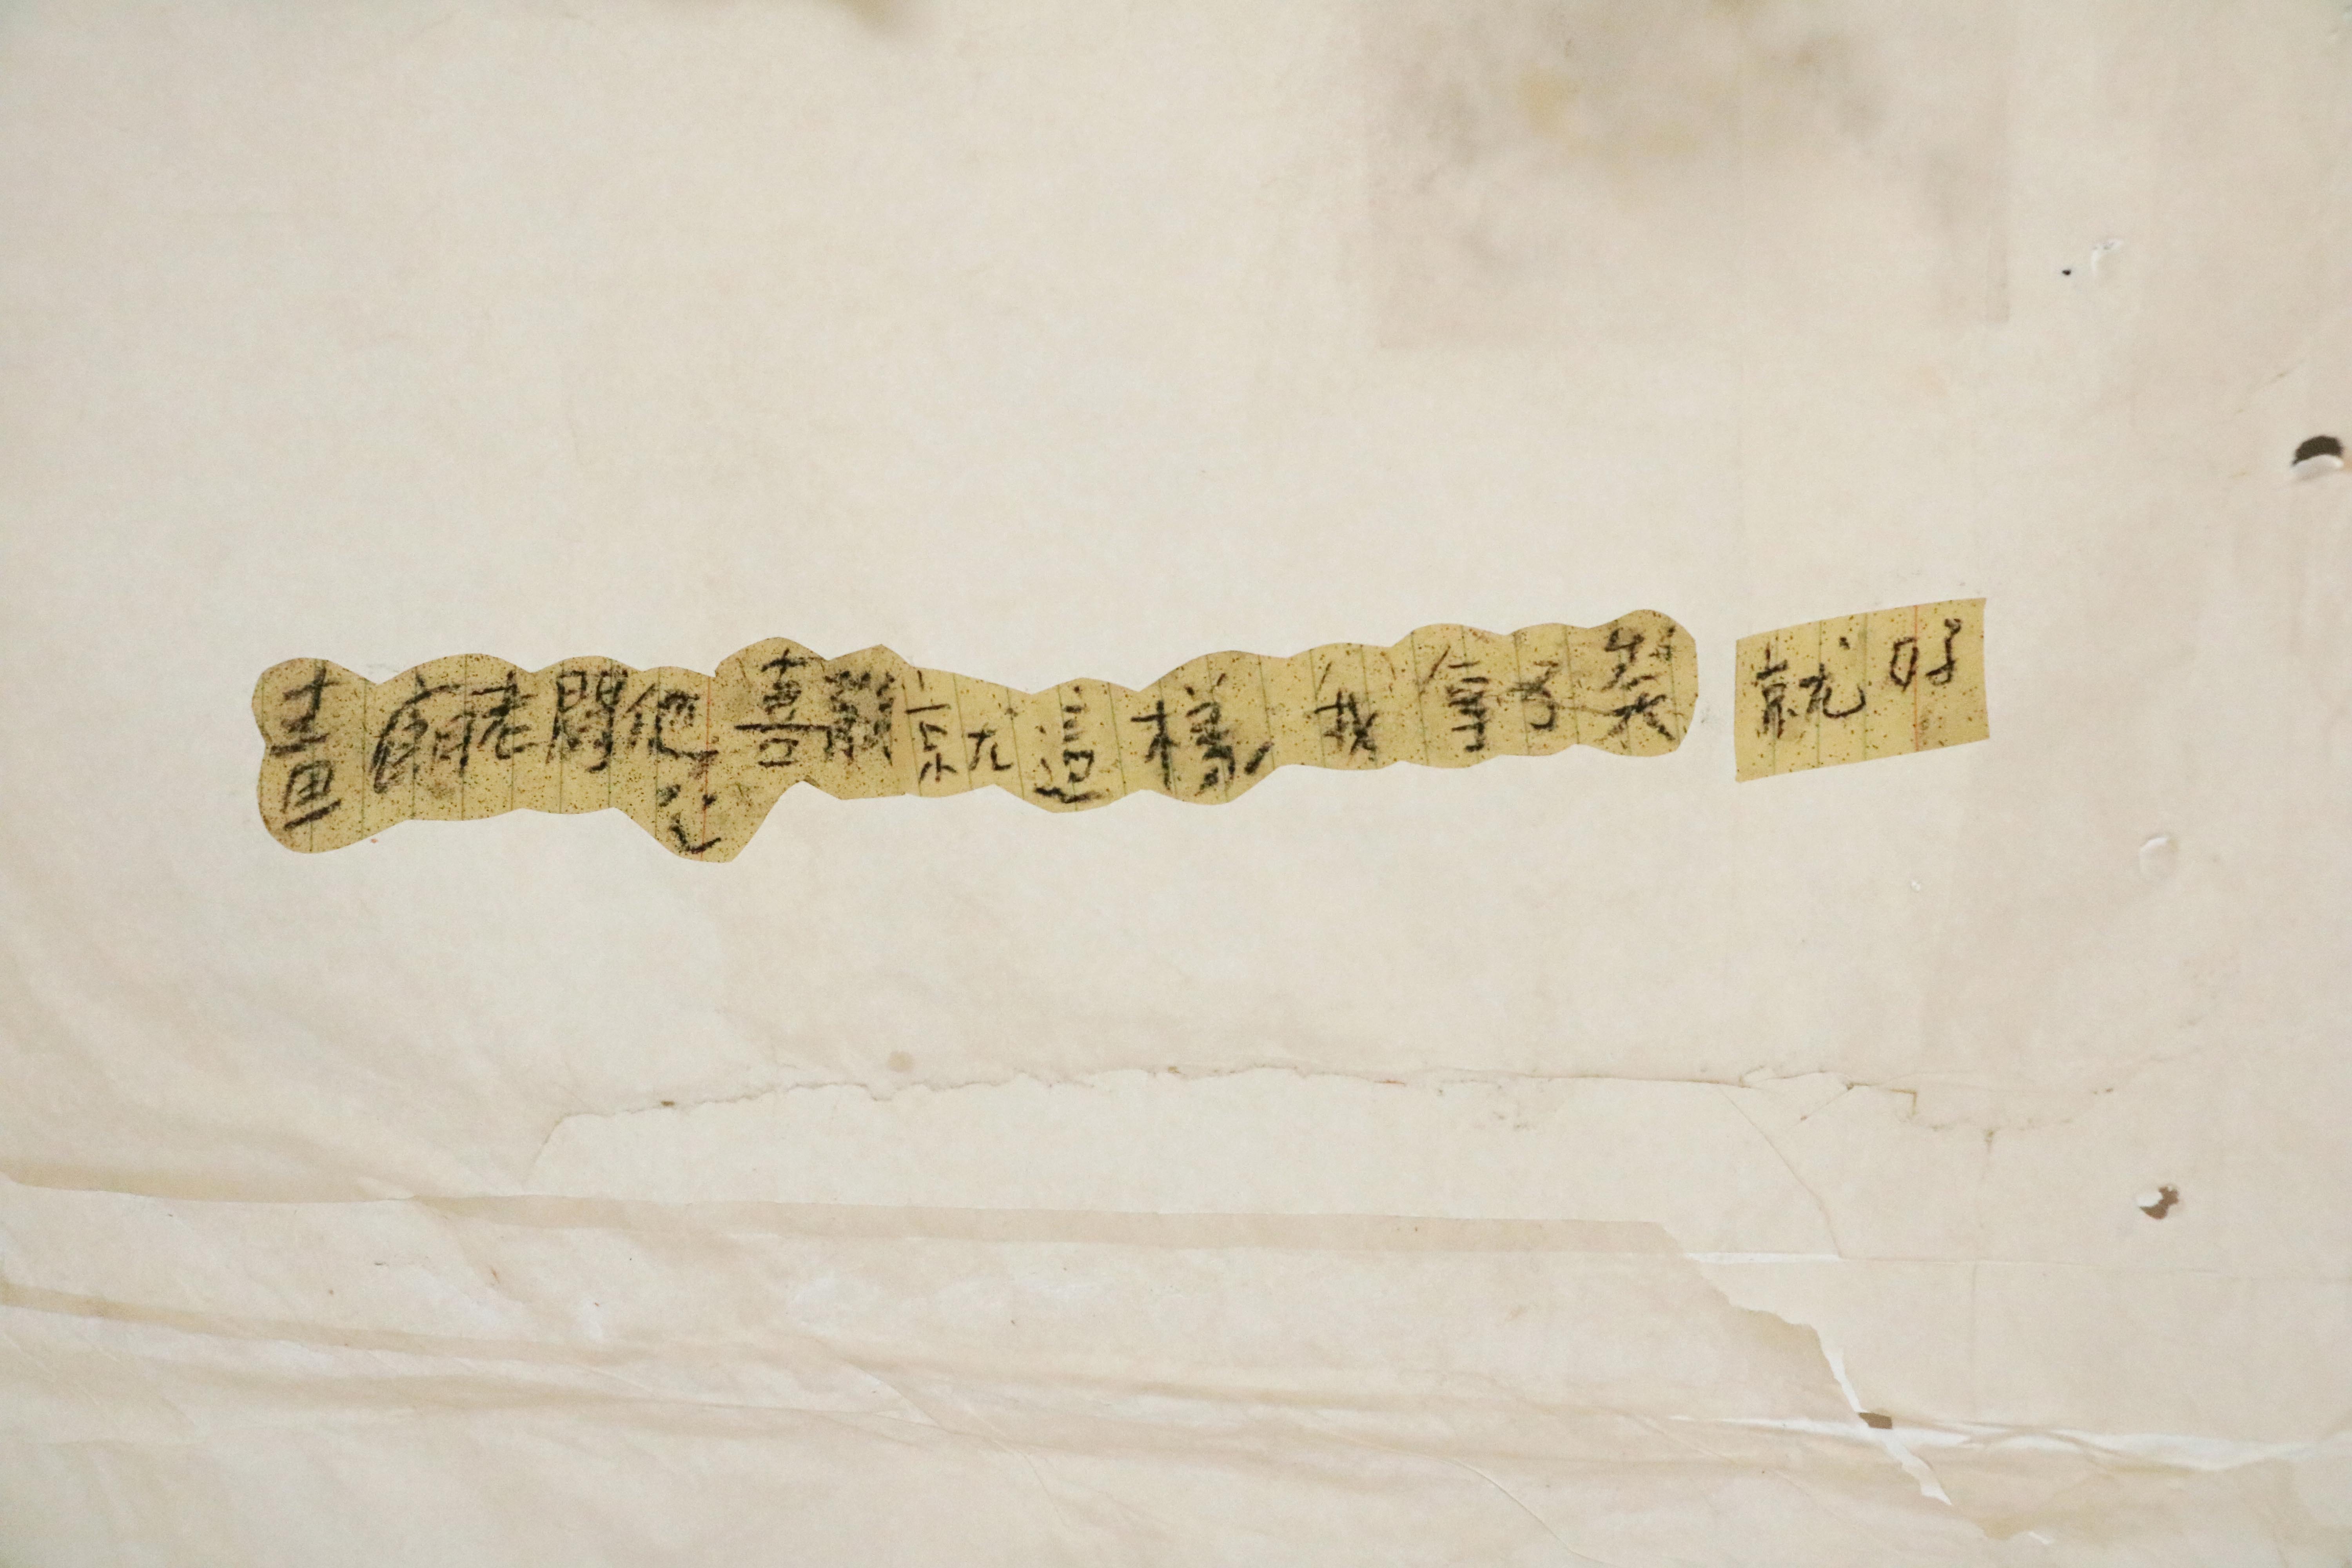 畫廊老闆他喜歡就這樣我獎 就好